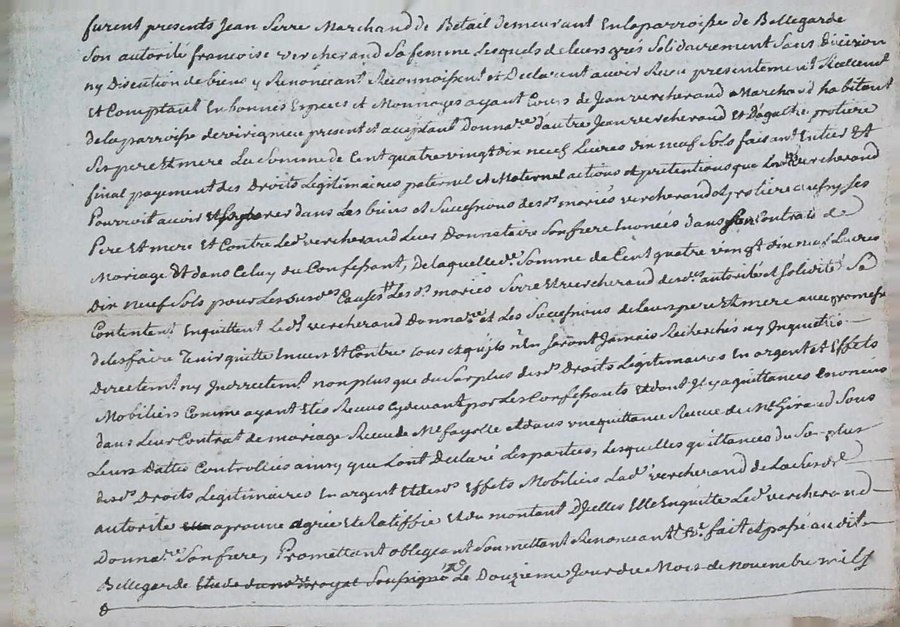 furent presents Jean Serre Marchand de Betail demeurant En la parroisse de Bellegarde
Son autorité francoise vercherand Sa femme Lesquels de leurs grés Solidairement Sans Division
ny Discution de biens y Renonceant Reconnoissent et Declarent avoir Receu presentement Reellement
et Comptant En bonnes Especes et Monnoyes ayant Cours de Jean vercherand Marchand habitant
de la parroisse de present et acceptant Donnare. d'autre Jean vercherand Et D'agathe protiere
Ses pere Et mere La Somme de Cent quatre vingt dix neuf Livres dix neuf Sols faisant Entier Et
final payement des Droits Legitimaires paternel et Maternel actions et pretentions que Lad. vercherand
Pourroit avoir dans Les biens et Successions desd. mariés vercherand et protiere Ses
Pere Et mere Et Contre Led. vercherand Leur Donnataire Son frere Enoncés dans Contrats de
Mariage Et dans Celuy du Confessant, De laquelle de. Somme de Cent quatre vingt dix neuf Livres
Dix neuf Sols pour Les Susdes. Causes Les ds. mariés Serre Et vercherand desd. autorité et Solidité Se
Contentent Enquittent Led. vercherand Donnare et Les Successions de Leurs pere Et mere avec promesse
de Les faire Tenir quitte Envers Et Contre tous Et qu'ils n'En Seront Jamais Recherchés ny Inquietés
Directemt. ny Indirectemt. non plus que du Surplus desds. Droits Legitimaires En argent Et Effets
Mobiliers Comme ayant Etés Receus Cy devant par Les Confessants Et dont Il y a quittances Enoncées
dans Leur Contrat de mariage Receu de Me fayolle et dans une quittance Receue de Me Girard Sous
Leurs Dattes Controllées ainsy que Lont Declaré Les parties, Lesquelles quittances du Surplus
desds. Droits Legitimaires En argent Et desds. Effets Mobiliers Lad. vercherand de La Susde.
autorité aprouve agrée Et Ratiffie Et du montant D'Icelles Elle Enquitte Led. vercherand
Donnare. Son frere, Promettant obligeant Soumettant Renonceant &c. fait et passé audit
Bellegarde Etude du nore. royal Soussigné Le Douzieme Jour du Mois de novembre mil